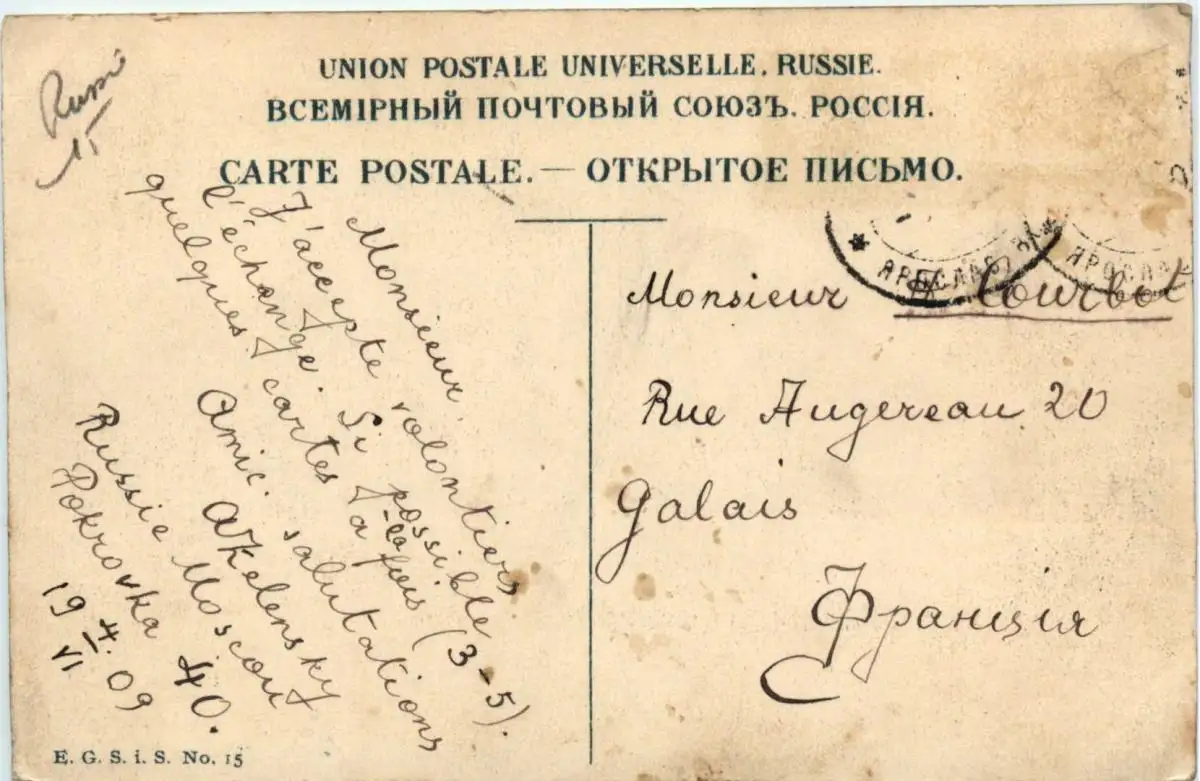 UNION POSTALE UNIVERSELLE. RUSSIE.
ВСЕМІРНЫЙ ПОЧТОВЫЙ СОЮЗЪ. РОССІЯ.
CARTE POSTALE. — ОТКРЫТОЕ ПИСЬМО.
Monsieur.
J'accepte volontiers
l'échange. Si possible
quelques cartes à la fois (3-5).
Amic. salutations
Russie Moscou
Pokrovka 40.
19 4/VI 09
ЯРОСЛАВ
ЯРОСЛА
Monsieur Courbot
Rue Augereau 20
Galais
Франція
E. G. S. i. S. No. 15